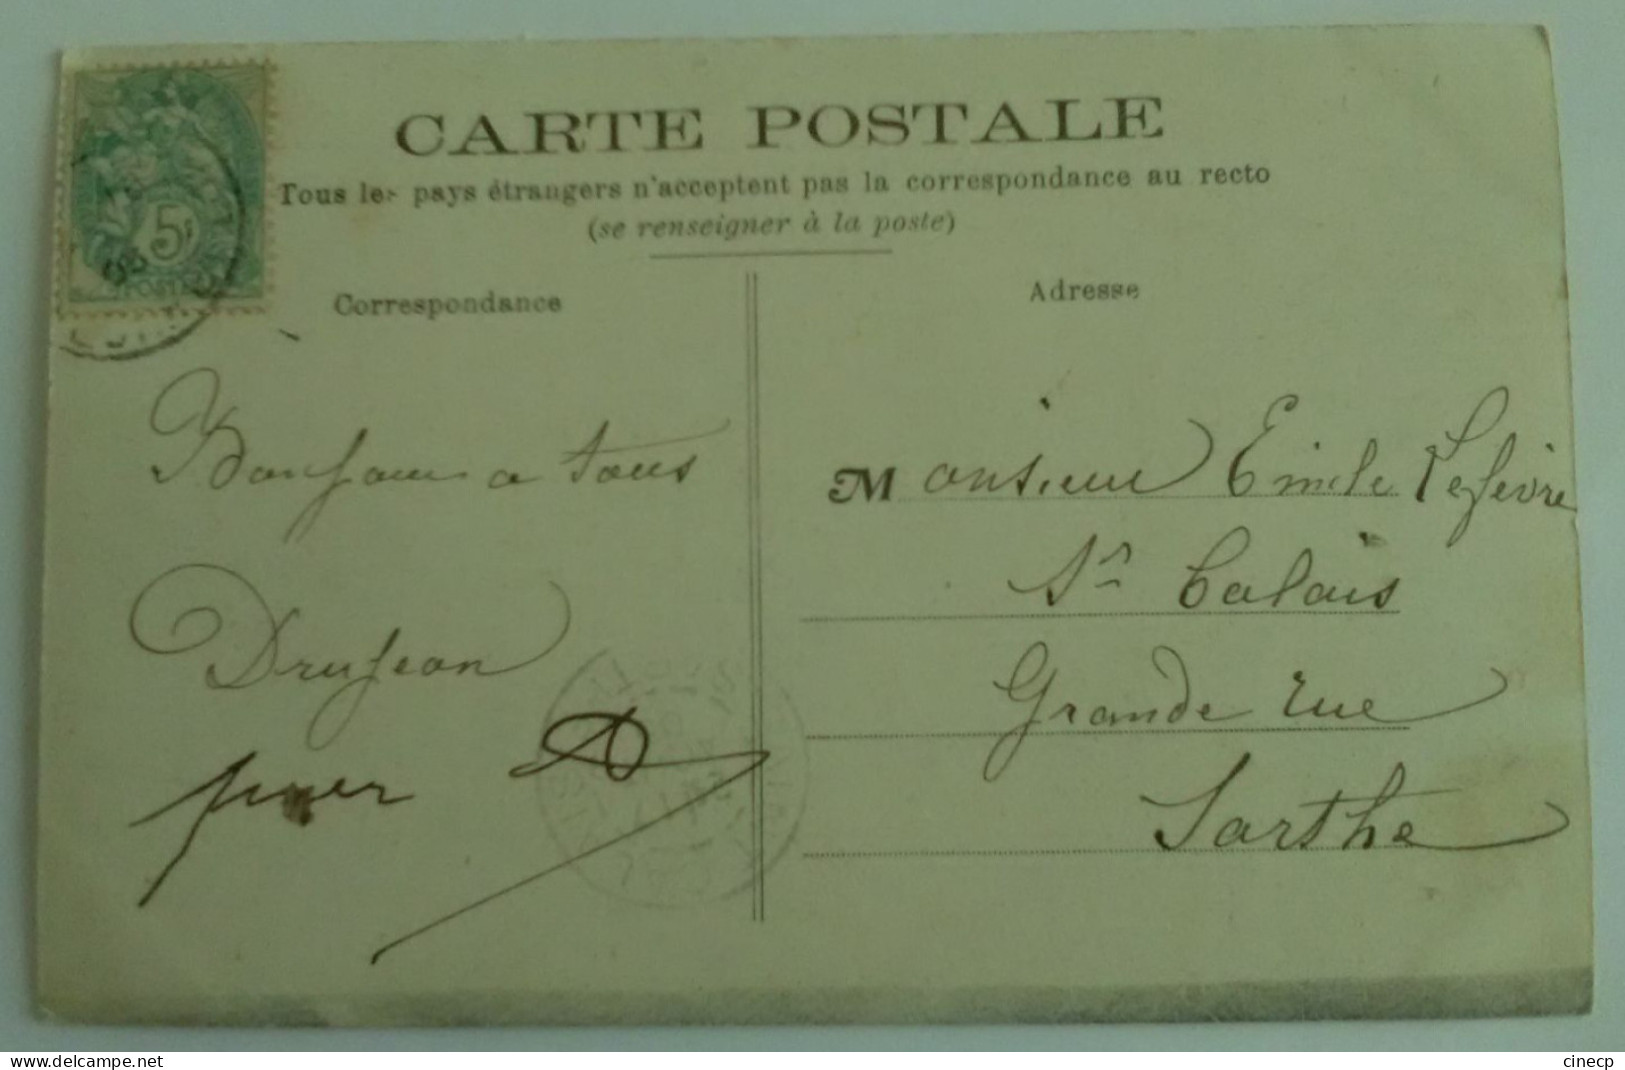 CARTE POSTALE
Tous les pays étrangers n'acceptent pas la correspondance au recto
(se renseigner à la poste)
Correspondance
Adresse
5c
POSTES
Bonjour a tous
Drujean
Monsieur Emile Lefèvre
St Calais
Grande rue
Sarthe
delcampe.net
cinecp